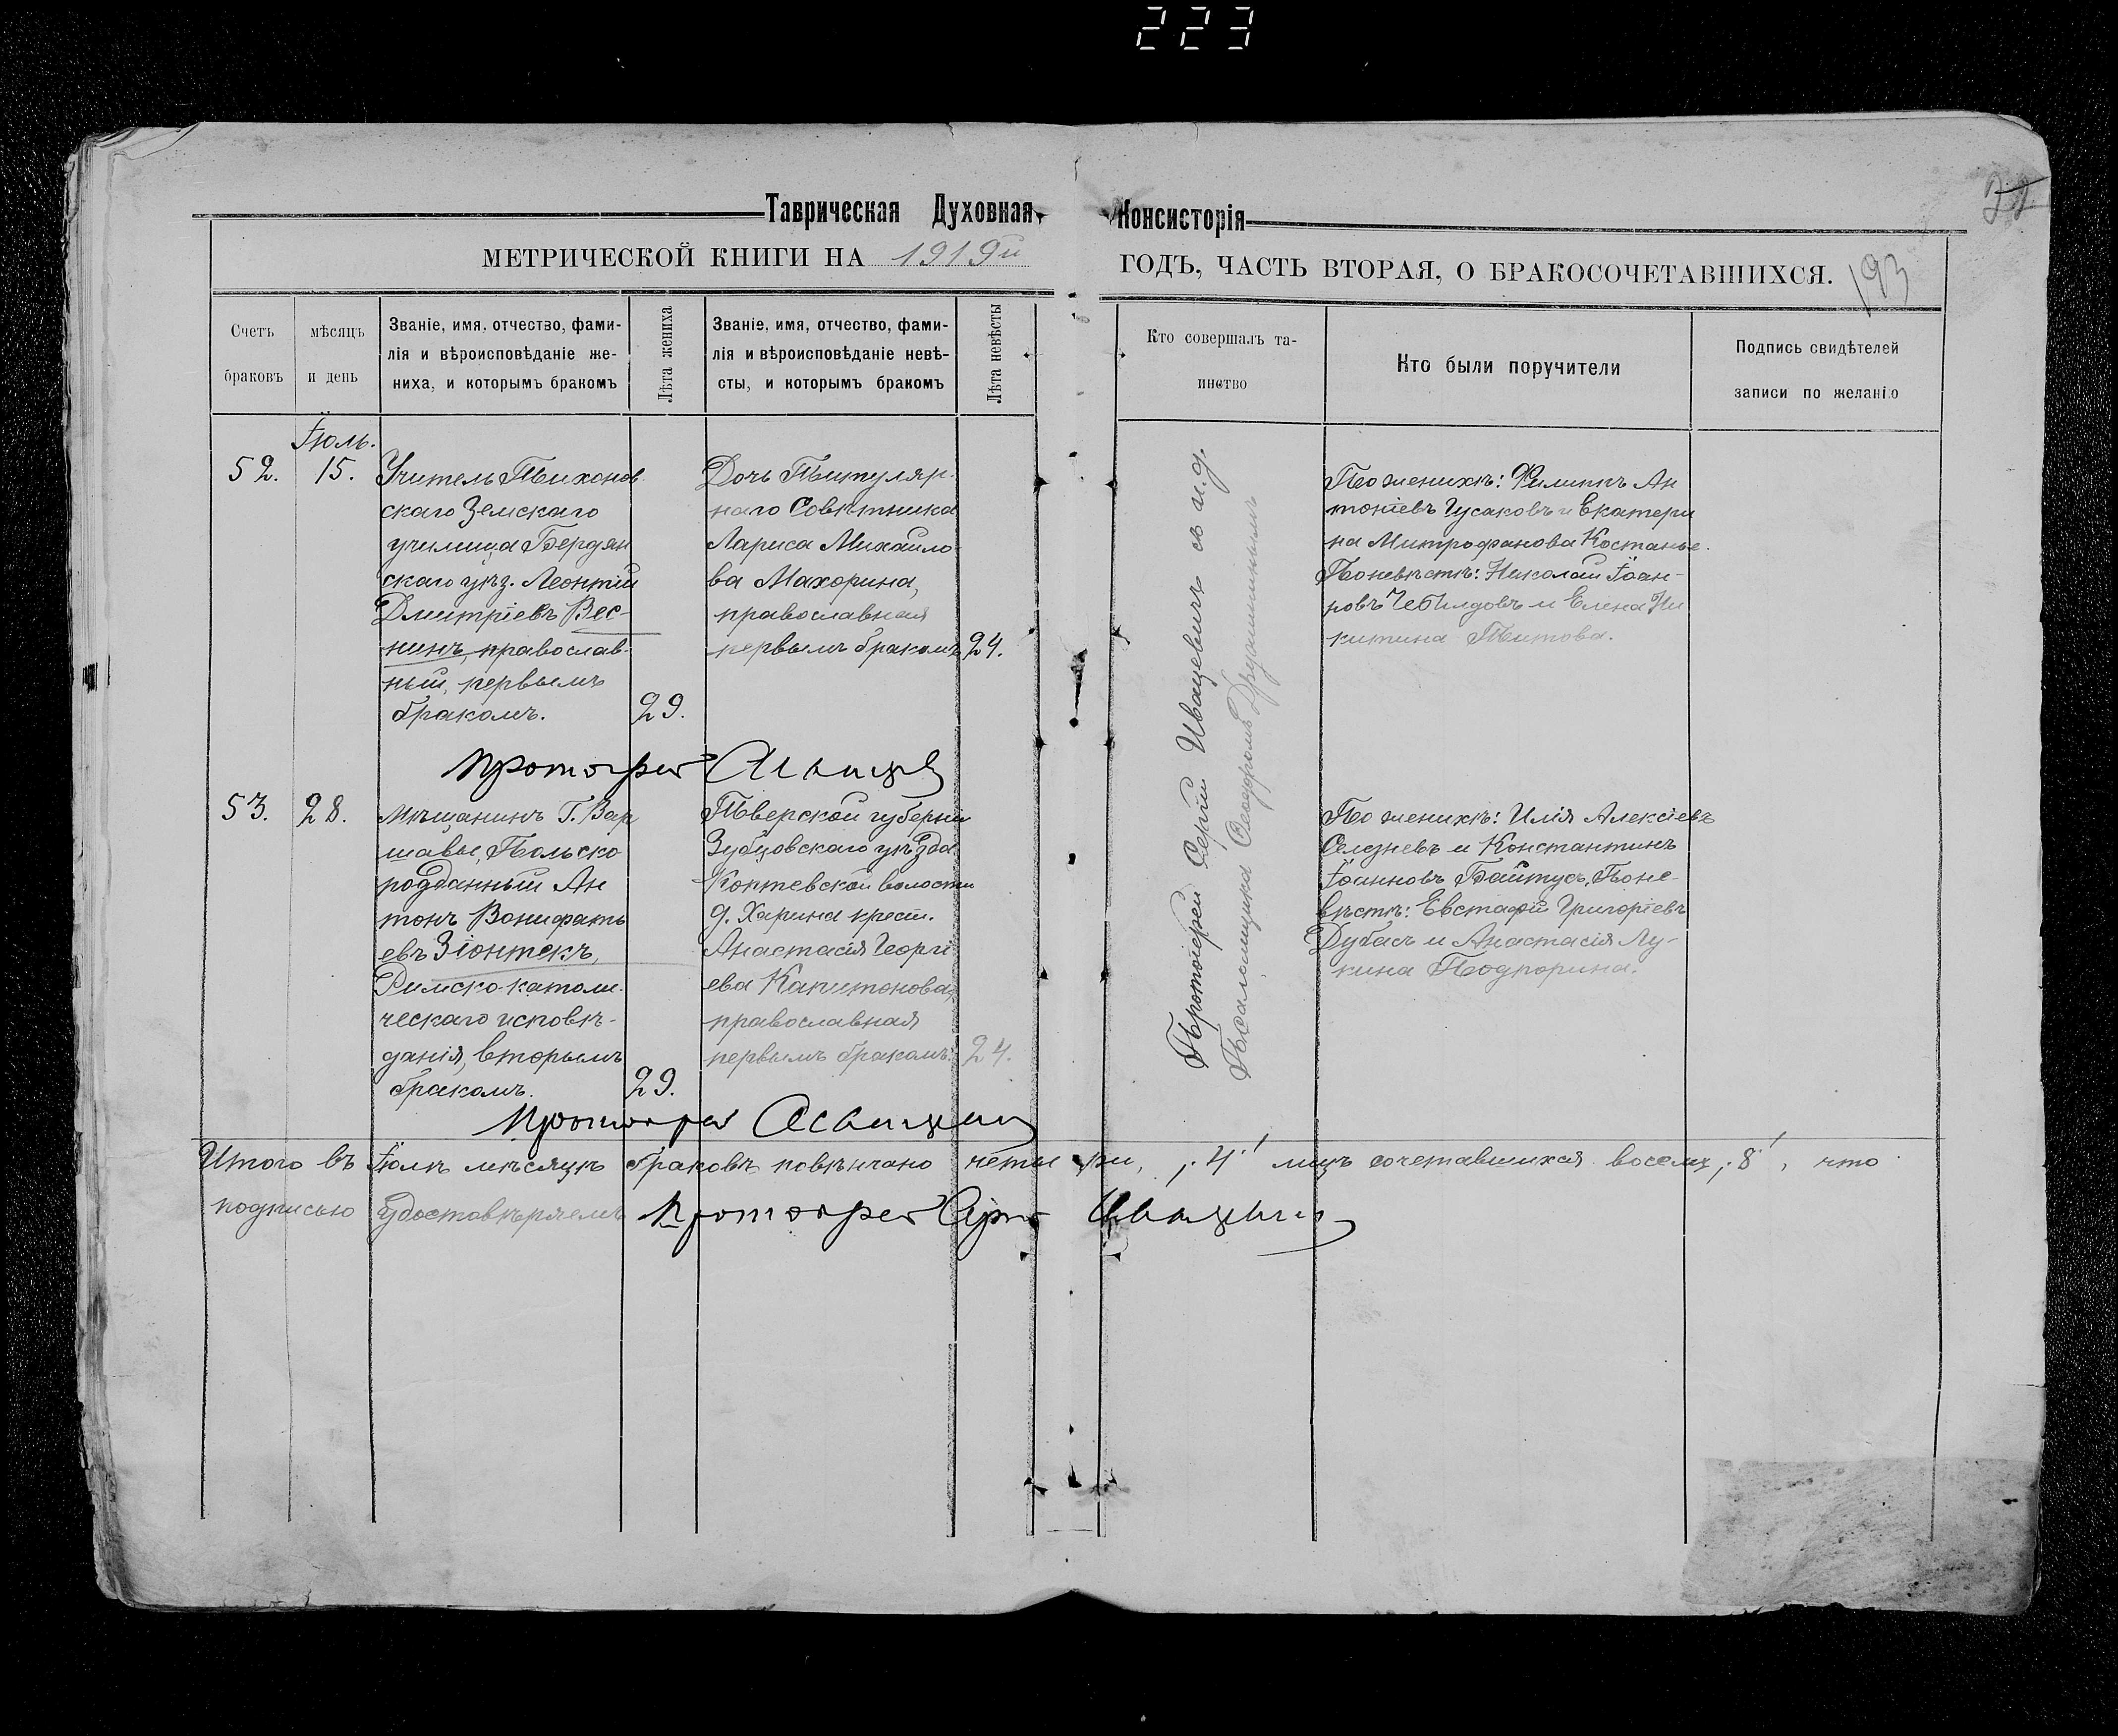 223
Таврическая Духовная Консисторія
МЕТРИЧЕСКОЙ КНИГИ НА 1919й ГОДЪ, ЧАСТЬ ВТОРАЯ, О БРАКОСОЧЕТАВШИХСЯ.
193
Счетъ
браковъ
мѣсяцъ
и день
Званіе, имя, отчество, фами-
лія и вѣроисповѣданіе же-
ниха, и которымъ бракомъ
Лѣта жениха
Званіе, имя, отчество, фами-
лія и вѣроисповѣданіе невѣ-
сты, и которымъ бракомъ
Лѣта невѣсты
Кто совершалъ та-
инство
Кто были поручители
Подпись свидѣтелей
записи по желанію
52.
Іюль.
15.
Учитель Тихонов
скаго Земскаго
училища Бердян
скаго уѣз. Леонтій
Дмитріевъ Вес-
нинъ, православ-
ный, первымъ
бракомъ.
29.
Дочь Титуляр-
наго Совѣтника
Лариса Михайло-
ва Махорина,
православная
первымъ бракомъ
24.
Протоіерей Сергій Иващевичъ съ и.д.
Псаломщика Ѳеодоромъ
По женихѣ: Филиппъ Ан
тоніевъ Гусаковъ и Екатери
на Митрофанова Костанье.
По невѣстѣ: Николай Іоан-
новъ Чебилдовъ и Елена Ни
китина Титова.
53.
28.
Мѣщанинъ Г. Вар
шавы, Польско
подданный Ан
тонъ Вонифать
евъ Зіонтекъ,
Римско-католи-
ческаго исповѣ-
данія, вторымъ
бракомъ.
29.
Тверской губерніи
Зубцовскаго уѣзда
Коптевской волости
д. Харина крест.
Анастасія Георгі
ева Капитонова,
православная
первымъ бракомъ.
24.
По женихѣ: Илія Алексіевъ
Селезневъ и Константинъ
Іоанновъ Байтусъ, По не-
вѣстѣ: Евстафій Григоріевъ
Дубасъ и Анастасія Лу-
кина Подпорина.
Итого въ Іюлѣ мѣсяцѣ браковъ повѣнчано четы ри, „4" лицъ сочетавшихся восемь „8", что
подписью удостовѣряемъ Протоіерей Сергій Иващевичъ